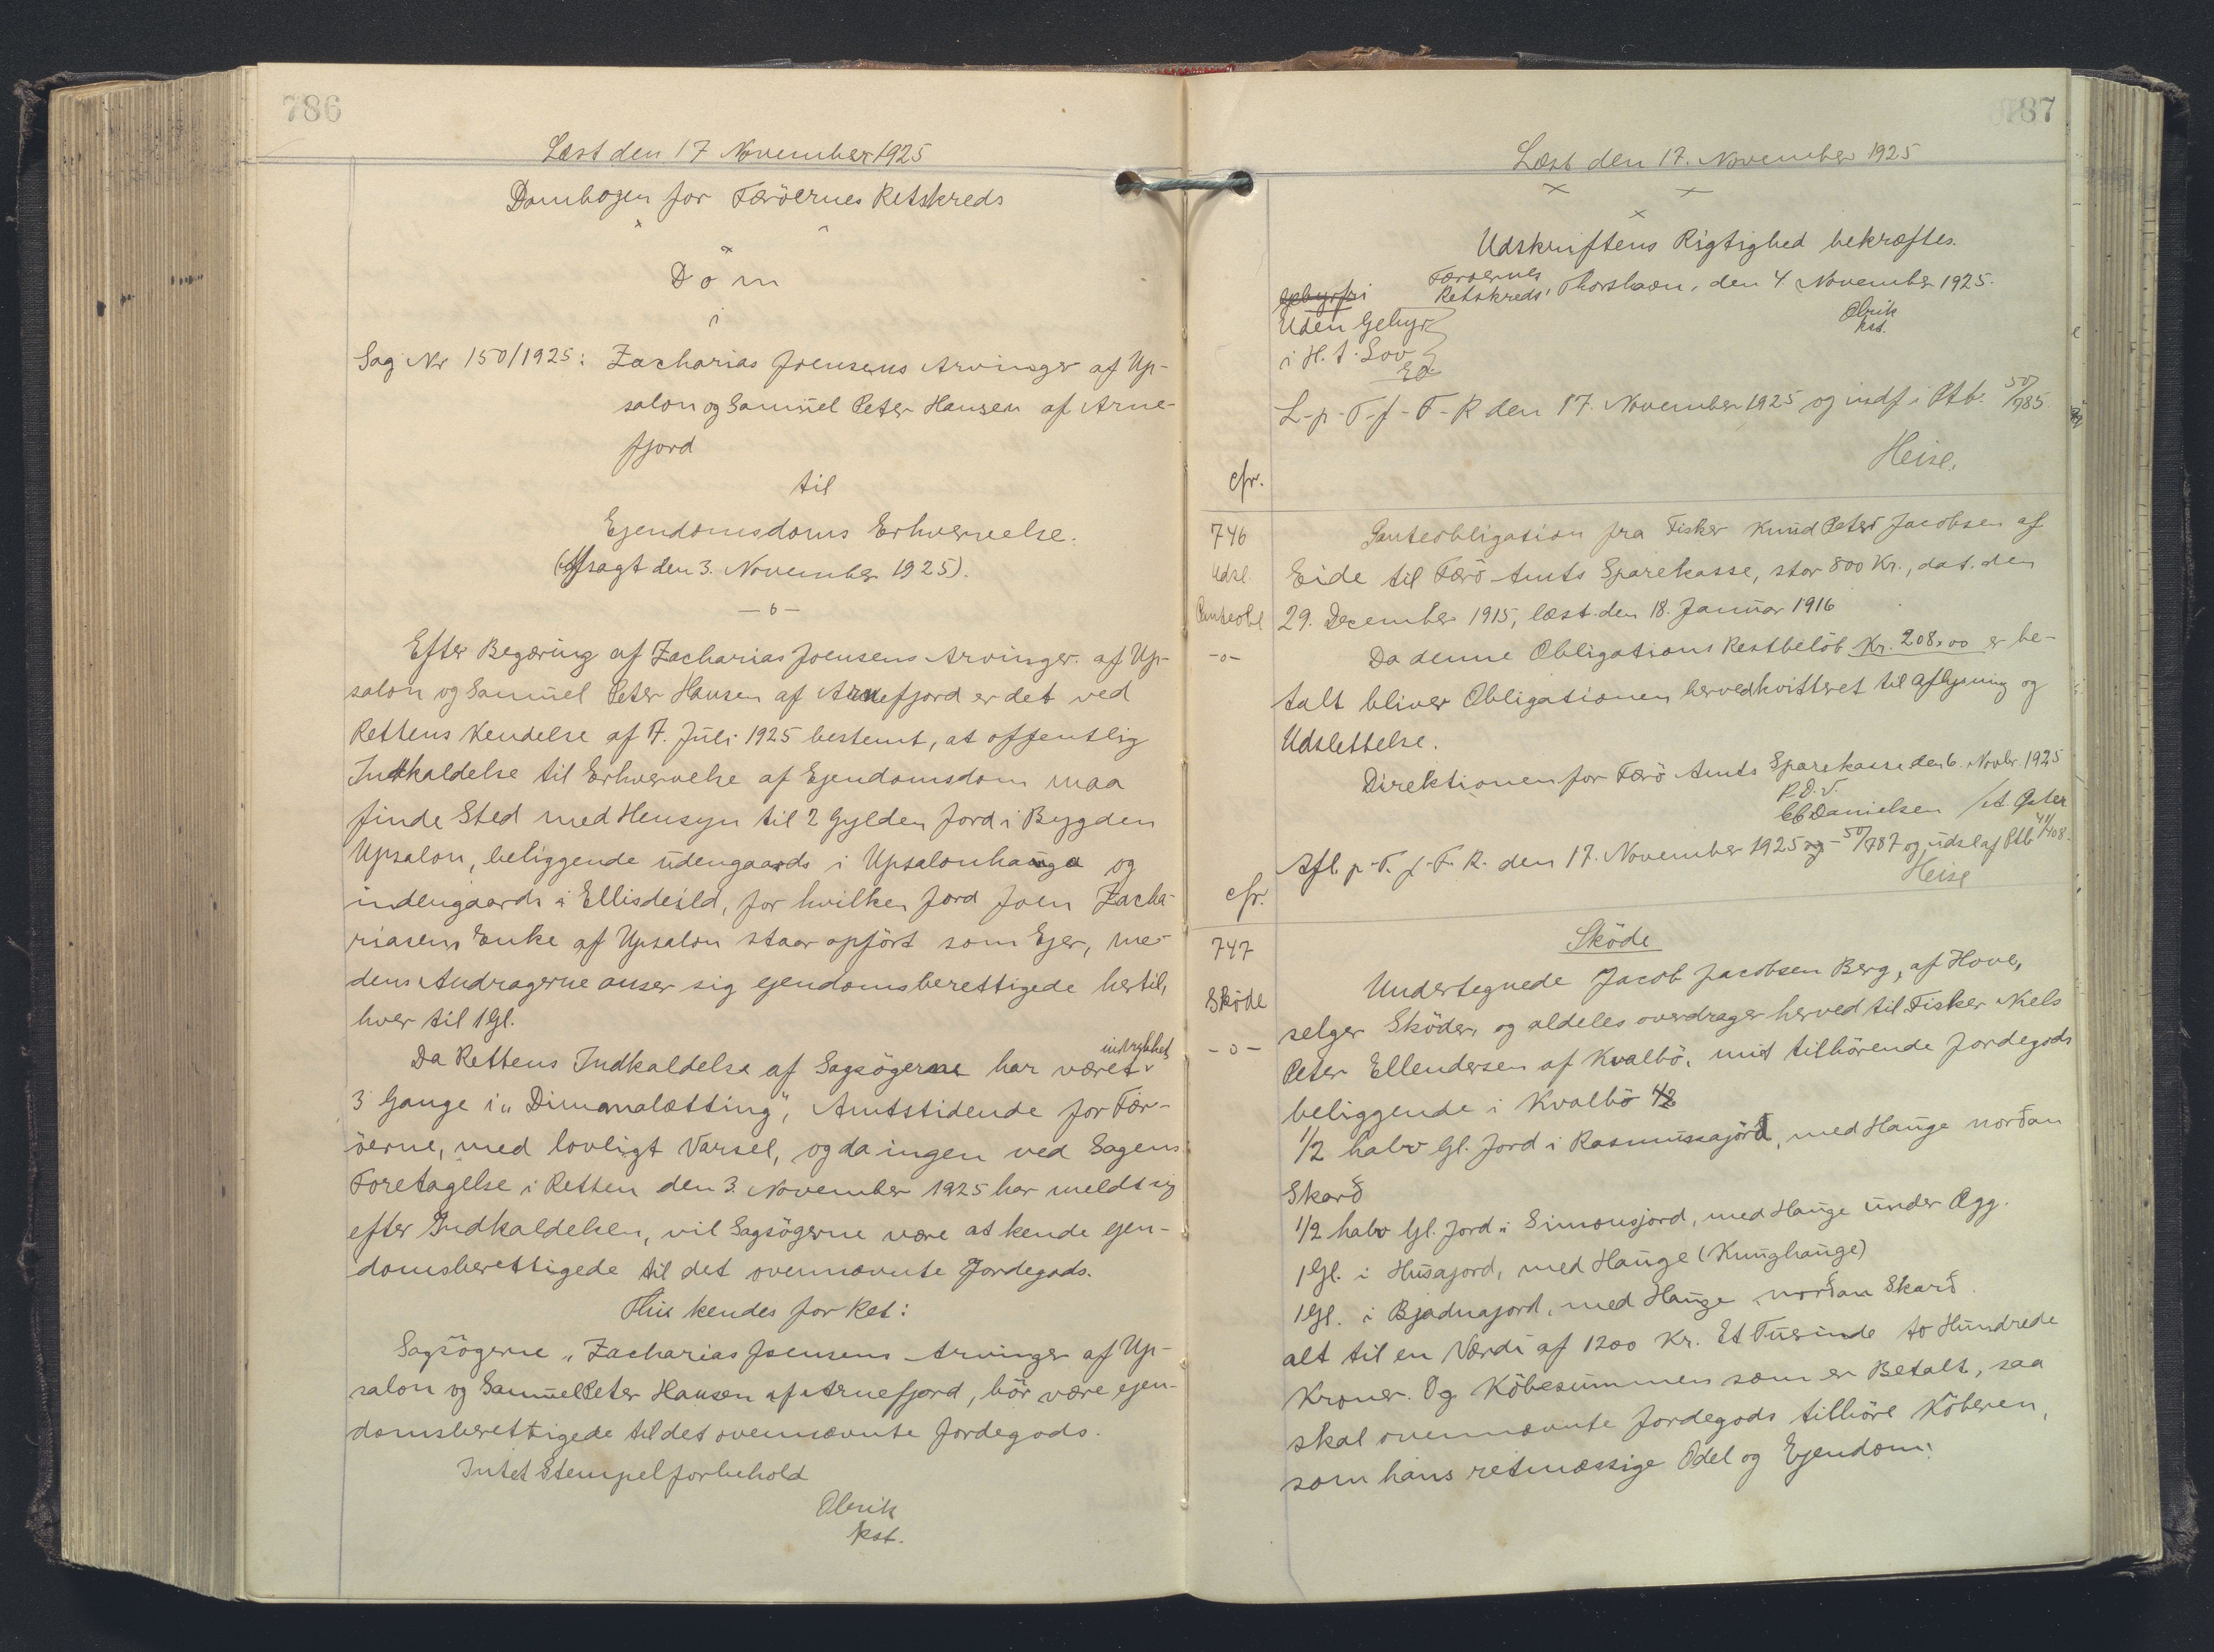 786
Læst den 17 November 1925
Dombogen for Færöernes Retskreds
Dom
i
Sag Nr 150/1925: Zacharias Joensens Arvinger af Up-
salon og Samuel Peter Hansen af Arne-
fjord
til
Ejendomsdoms Erhvervelse.
(Afsagt den 3. November 1925).
-o-
Efter Begæring af Zacharias Joensens Arvinger af Up-
salon og Samuel Peter Hansen af Arnefjord er det ved
Rettens Kendelse af 7. Juli 1925 bestemt, at offentlig
Indkaldelse til Erhvervelse af Ejendomsdom maa
finde Sted med Hensyn til 2 Gylden Jord i Bygden
Upsalon, beliggende udengaards i Upsalonhauga og
indengaards i Ellisdeild, for hvilken Jord Joen Zacha-
riasens Enke af Upsalon staar opført som Ejer, me-
dens Andragerne anser sig ejendomsberettigede hertil,
hver til 1 Gl.
Da Rettens Indkaldelse af Sagsögerne har været indrykket
3 Gange i "Dimmalætting", Amtstidende for Fær-
öerne, med lovligt Varsel, og da ingen ved Sagens
Foretagelse i Retten den 3. November 1925 har meldt sig
efter Indkaldelsen, vil Sagsögerne være at kende ejen-
domsberettigede til det ovennævnte Jordegods.
Thi kendes for Ret:
Sagsögerne, Zacharias Joensens Arvinger af Up-
salon og Samuel Peter Hansen af Arnefjord, bör være ejen-
domsberettigede til det ovennævnte Jordegods.
Intet Stempelforbehold
Olrik
kst.
787
Læst den 17. November 1925
Udskriftens Rigtighed bekræftes.
Færöernes
Retskreds, Thorshavn, den 4 November 1925.
Olrik
kst.
gebyrfri
Uden Gebyr
i H. t. Lov
L-p-T-f-F-R den 17. November 1925 og indf i Ptb. 50/785
Heise.
cfr.
746
Udsl.
Panteobl
-o-
Panteobligation fra Fisker Knud Peter Jacobsen af
Eide til Færö Amts Sparekasse, stor 800 Kr., dat. den
29. December 1915, læst den 18. Januar 1916
Da denne Obligations Restbelöb Kr. 208,00 er be-
talt bliver Obligationen herved kvitteret til Aflysning og
Udslettelse.
Direktionen for Færö Amts Sparekasse den 6. Novbr. 1925
P.D.V.
CC Danielsen /A Öster
Afl. p-T. f-F. R. den 17. November 1925 og 50/787 og udsl af Ptb 41/408.
Heise
cfr.
747
Sköde
-o-
Sköde
Undertegnede Jacob Jacobsen Berg, af Hove,
selger Sköder, og aldeles overdrager herved til Fisker Niels
Peter Ellendersen af Kvalbö, mit tilhörende Jordegods
beliggende i Kvalbö 1/2
1/2 halv Gl. Jord i Rasmussajörd, med Hauge norðan
Skarð
1/2 halv Gl. Jord i Simonsjord, med Hauge under Egg.
1 Gl. i Husajord, med Hauge (Kunghauge)
1 Gl. i Bjadnajord, med Hauge norðan Skarð.
alt til en Værdi af 1200 Kr. Et Tusinde to Hundrede
Kroner. Og Köbesummen som er Betalt, saa
skal ovennævnte Jordegods tilhöre Köberen,
som hans retmæssige Odel og Ejendom: